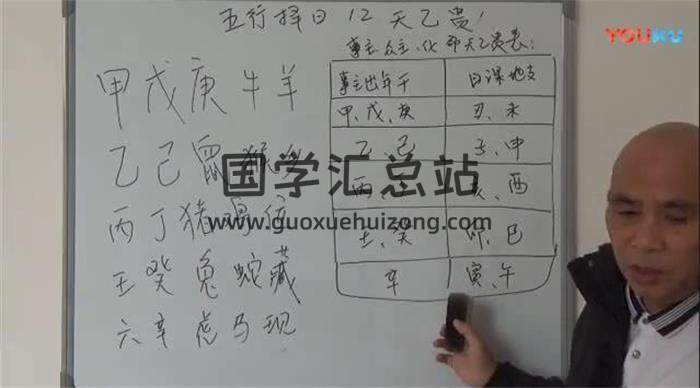 五行择日12天乙贵
YOUKU
事主众主、化命天乙贵表:
事主出年干 日课地支
甲戊庚牛羊
甲、戊、庚 丑、未
乙己鼠猴
乙、己 子、申
国学汇总站
www.guoxuehuizong.com
丙丁猪鸡位
丙 亥、酉
壬癸兔蛇藏
壬、癸 卯、巳
辛 寅、午
六辛虎马现